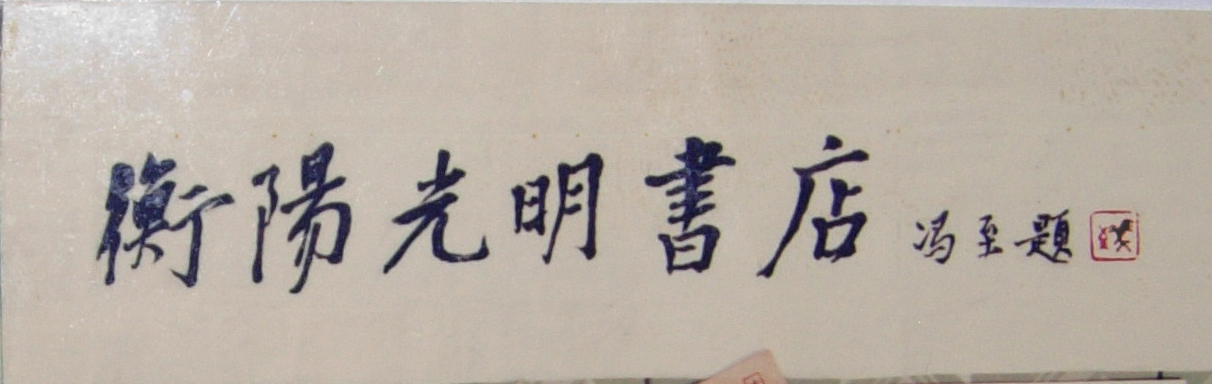 衡陽光明書店 冯至题